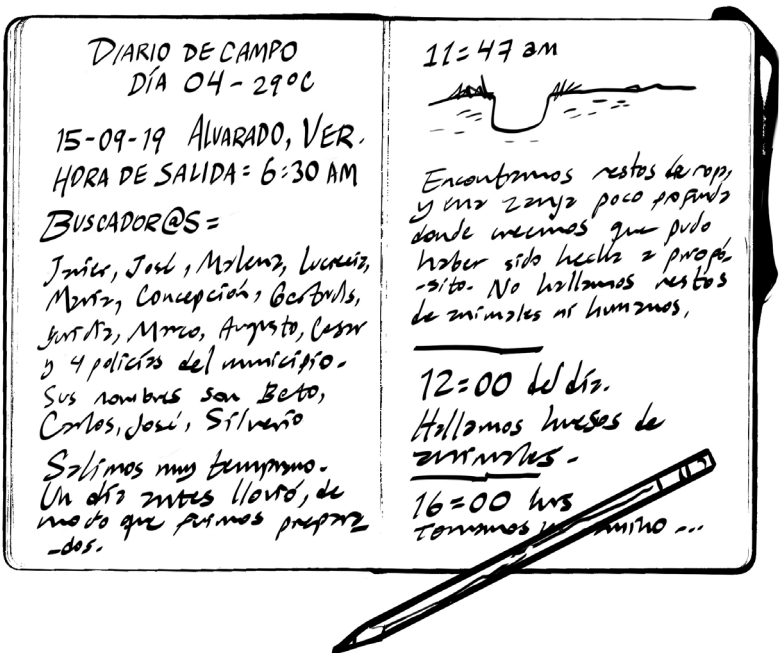 DIARIO DE CAMPO
DÍA 04 - 29°C
15-09-19 ALVARADO, VER.
HORA DE SALIDA = 6:30 AM
BUSCADOR@S =
Javier, José, Malena, Lucrecia,
María, Concepción, Gertrudis,
Yuridia, Marco, Augusto, Cesar
y 4 policías del municipio.
Sus nombres son Beto,
Carlos, José, Silverio
Salimos muy temprano.
Un día antes llovió, de
modo que fuimos prepara
-dos.
11:47 am
Encontramos restos de ropa,
y una zanja poco profunda
donde creemos que pudo
haber sido hecha a propó-
-sito. No hallamos restos
de animales ni humanos.
12:00 del día.
Hallamos huesos de
animales.
16:00 hrs
Tomamos camino ...